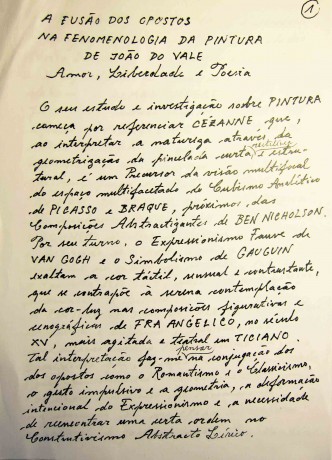 1
A FUSÃO DOS OPOSTOS
NA FENOMENOLOGIA DA PINTURA
DE JOÃO DO VALE
Amor, Liberdade e Poesia
O seu estudo e investigação sobre PINTURA
começa por referenciar CÉZANNE que,
ao interpretar a natureza através da
geometrização da pincelada curta, e estru-
tural, é um Precursor da visão multifocal
do espaço multifacetado do Cubismo Analítico
de PICASSO e BRAQUE, próximos das
Composições Abstractizantes de BEN NICHOLSON.
Por seu turno, o Expressionismo Fauve de
VAN GOGH e o Simbolismo de GAUGUIN
exaltam a cor táctil, sensual e contrastante,
que se contrapõe à serena contemplação
da cor-luz nas composições figurativas e
cenográficas de FRA ANGELICO, no século
XV, mais agitada e teatral em TICIANO.
Tal interpretação faz-me pensar na conjugação dos
dos opostos como o Romantismo e o Classicismo,
o gesto impulsivo e a geometria, a deformação
intencional do Expressionismo e a necessidade
de reencontrar uma certa ordem no
Construtivismo Abstracto Lírico.